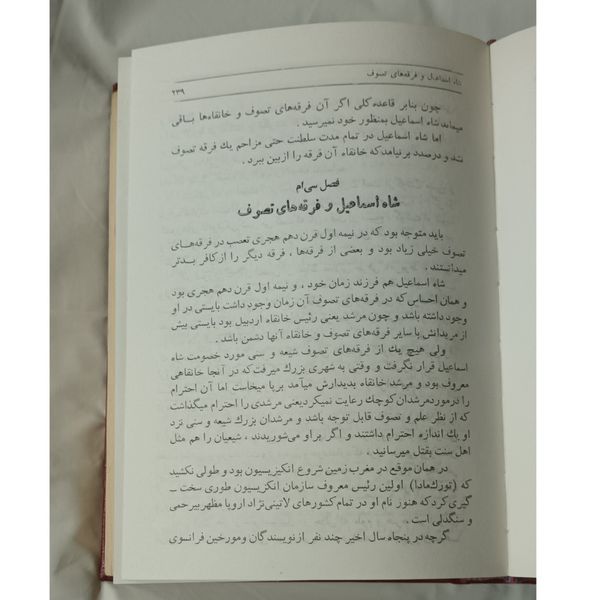 شاه اسماعیل و فرقه‌های تصوف
۲۳۹
چون بنابر قاعده کلی اگر آن فرقه‌های تصوف و خانقاه‌ها باقی
میماند شاه اسماعیل بمنظور خود نمیرسید .
اما شاه اسماعیل در تمام مدت سلطنت حتی مزاحم یك فرقه تصوف
نشد و درصدد بر نیامد که خانقاه آن فرقه را از بین ببرد .
فصل سی‌ام
شاه اسماعیل و فرقه‌های تصوف
باید متوجه بود که در نیمه اول قرن دهم هجری تعصب در فرقه‌های
تصوف خیلی زیاد بود و بعضی از فرقه‌ها ، فرقه دیگر را از کافر بدتر
میدانستند .
شاه اسماعیل هم فرزند زمان خود ، و نیمه اول قرن دهم هجری بود
و همان احساس که در فرقه‌های تصوف آن زمان وجود داشت بایستی در او
وجود داشته باشد و چون مرشد یعنی رئیس خانقاه اردبیل بود بایستی بیش
از مریدانش با سایر فرقه‌های تصوف و خانقاه آنها دشمن باشد .
ولی هیچ یك از فرقه‌های تصوف شیعه و سنی مورد خصومت شاه
اسماعیل قرار نگرفت و وقتی به شهری بزرگ میرفت که در آنجا خانقاهی
معروف بود و مرشد خانقاه بدیدارش میآمد بر پا میخاست اما آن احترام
را در مورد مرشدان کوچك رعایت نمیکرد یعنی مرشدی را احترام میگذاشت
که از نظر علم و تصوف قابل توجه باشد و مرشدان بزرگ شیعه و سنی نزد
او یك اندازه احترام داشتند و اگر بر او می‌شوریدند ، شیعیان را هم مثل
اهل سنت بقتل میرسانید .
در همان موقع در مغرب زمین شروع انکیزیسیون بود و طولی نکشید
که (تورك‌مادا) اولین رئیس معروف سازمان انکیزسیون طوری سخت ـ
گیری کرد که هنوز نام او در تمام کشورهای لاتینی‌نژاد اروپا مظهر بیرحمی
و سنگدلی است .
گرچه در پنجاه سال اخیر چند نفر از نویسندگان و مورخین فرانسوی